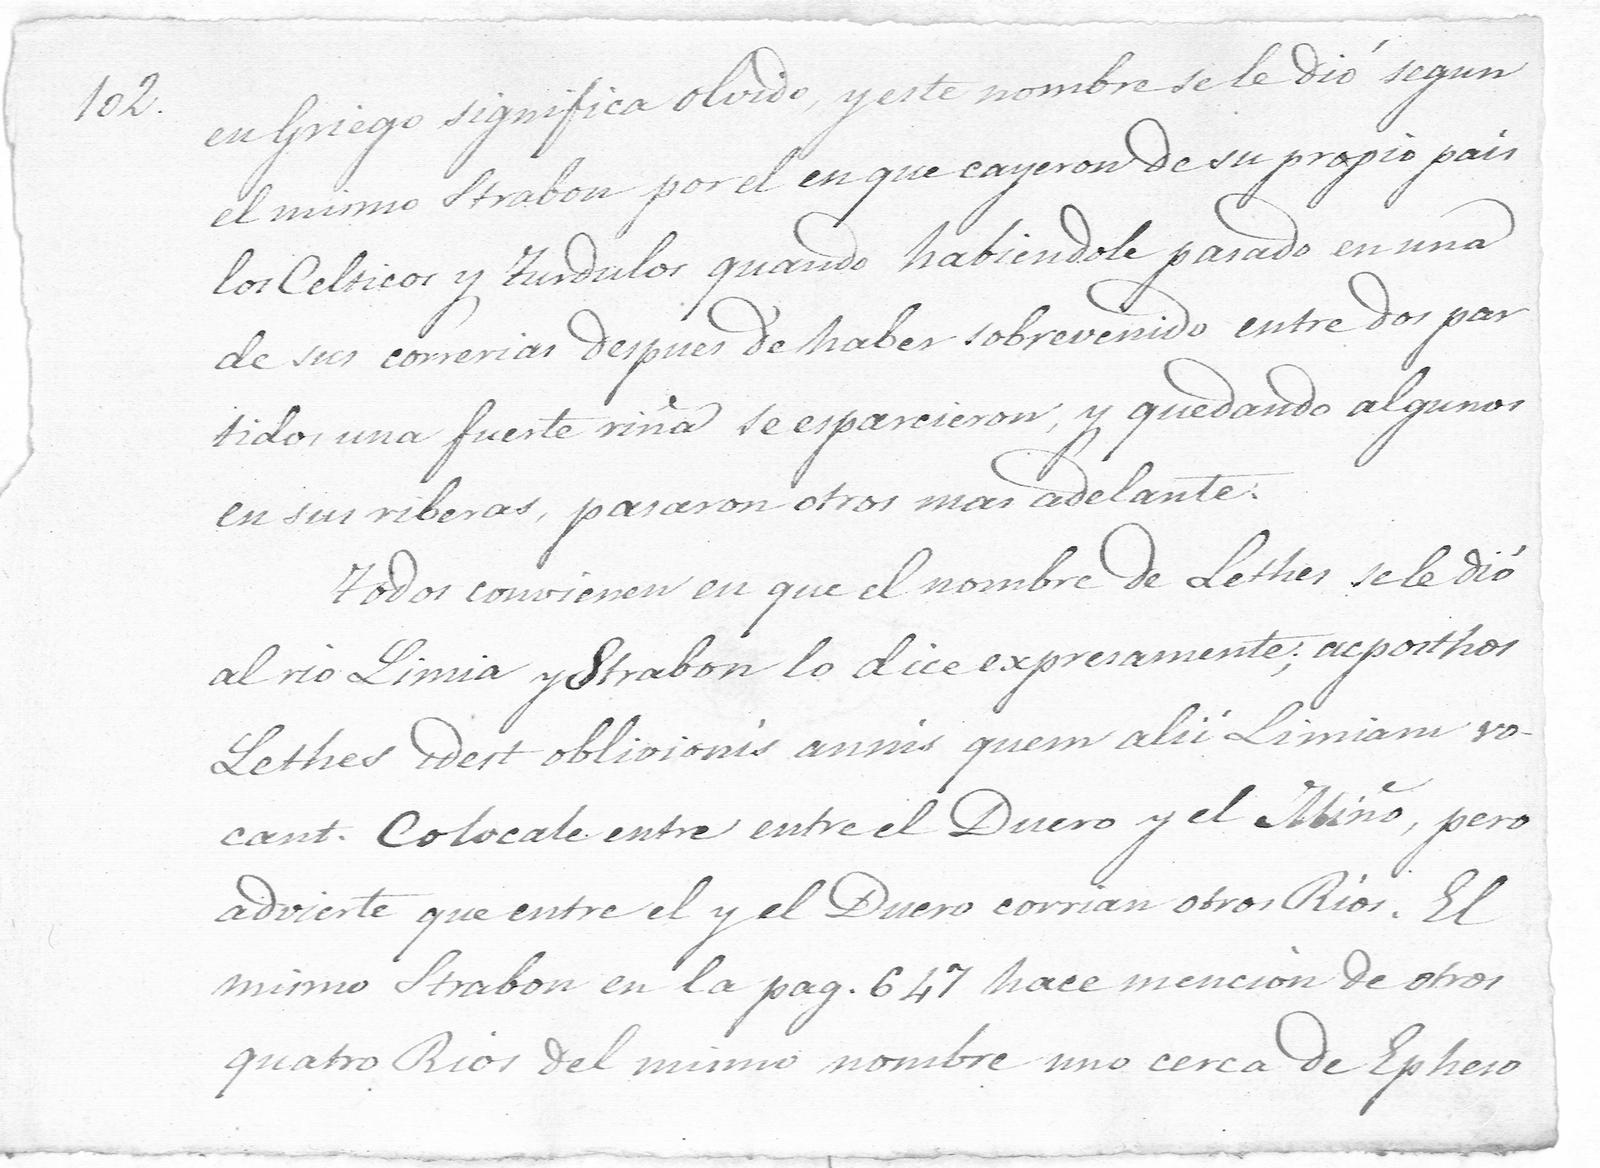 102.
en Griego significa olvido, y este nombre se le dió segun
el mismo Strabon por el en que cayeron de su propio pais
los Celticos y Turdulos quando habiendole pasado en una
de sus correrias despues de haber sobrevenido entre dos par
tidos una fuerte riña se esparcieron, y quedando algunos
en sus riberas, pasaron otros mas adelante.
Todos convienen en que el nombre de Lethes se le dió
al rio Limia y Strabon lo dice expresamente; ac posthos
Lethes idest oblivionis amnis quem alii Limiam vo-
cant. Colocale entre entre el Duero y el Miño, pero
advierte que entre el y el Duero corrian otros Rios. El
mismo Strabon en la pag. 647 hace mención de otros
quatro Rios del mismo nombre uno cerca de Epheso